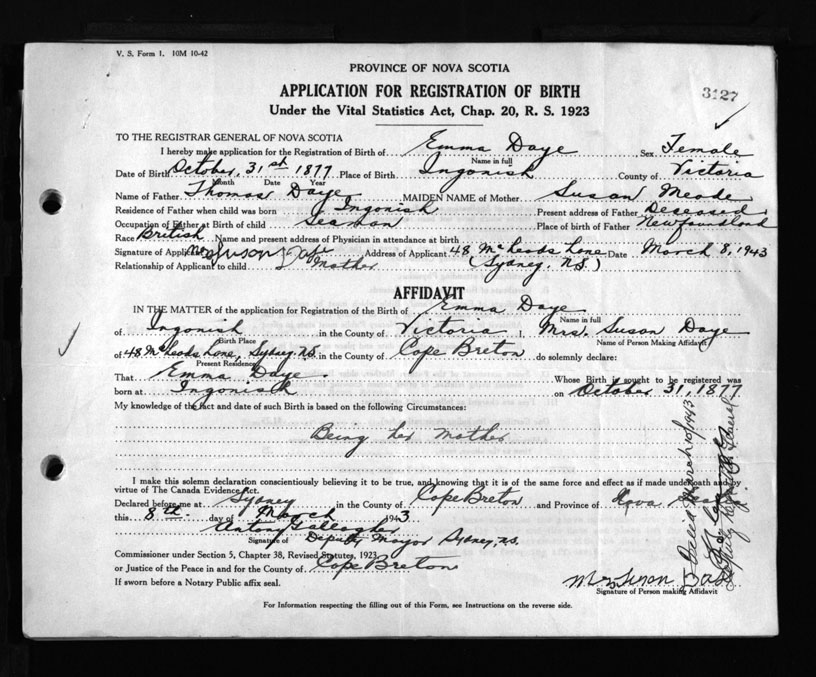 V. S. Form 1. 10M 10-42
PROVINCE OF NOVA SCOTIA
APPLICATION FOR REGISTRATION OF BIRTH
3127
Under the Vital Statistics Act, Chap. 20, R. S. 1923
TO THE REGISTRAR GENERAL OF NOVA SCOTIA
I hereby make application for the Registration of Birth of Emma Daye Sex Female
Name in full
Date of Birth October 31st 1877 Place of Birth Ingonish County of Victoria
Month Date Year
Name of Father Thomas Daye MAIDEN NAME of Mother Susan Meade
Residence of Father when child was born Ingonish Present address of Father Deseased
Occupation of Father at Birth of child Seaman Place of birth of Father Newfoundland
Race British Name and present address of Physician in attendance at birth
Signature of Applicant Mrs Susan Daye Address of Applicant 48 McLeods Lane Date March 8, 1943
Relationship of Applicant to child Mother (Sydney, N.S.)
AFFIDAVIT
IN THE MATTER of the application for Registration of the Birth of Emma Daye
Name in full
of Ingonish in the County of Victoria I, Mrs. Susan Daye
Birth Place Name of Person Making Affidavit
of 48 McLeods Lane, Sydney N.S. in the County of Cape Breton do solemnly declare:
Present Residence
That Emma Daye Whose Birth is sought to be registered was
born at Ingonish on October 31, 1877
My knowledge of the fact and date of such Birth is based on the following Circumstances:
Being her mother
I make this solemn declaration conscientiously believing it to be true, and knowing that it is of the same force and effect as if made under oath and by
virtue of The Canada Evidence Act.
Declared before me at Sydney in the County of Cape Breton and Province of Nova
this 8th day of March 1943
Antony Gallagher
Signature of Deputy Mayor Sydney, N.S.
Commissioner under Section 5, Chapter 38, Revised Statutes, 1923
or Justice of the Peace in and for the County of Cape Breton
If sworn before a Notary Public affix seal.
Mrs Susan Daye
Signature of Person making Affidavit
For Information respecting the filling out of this Form, see Instructions on the reverse side.
March 10/1943
Deputy Registrar General